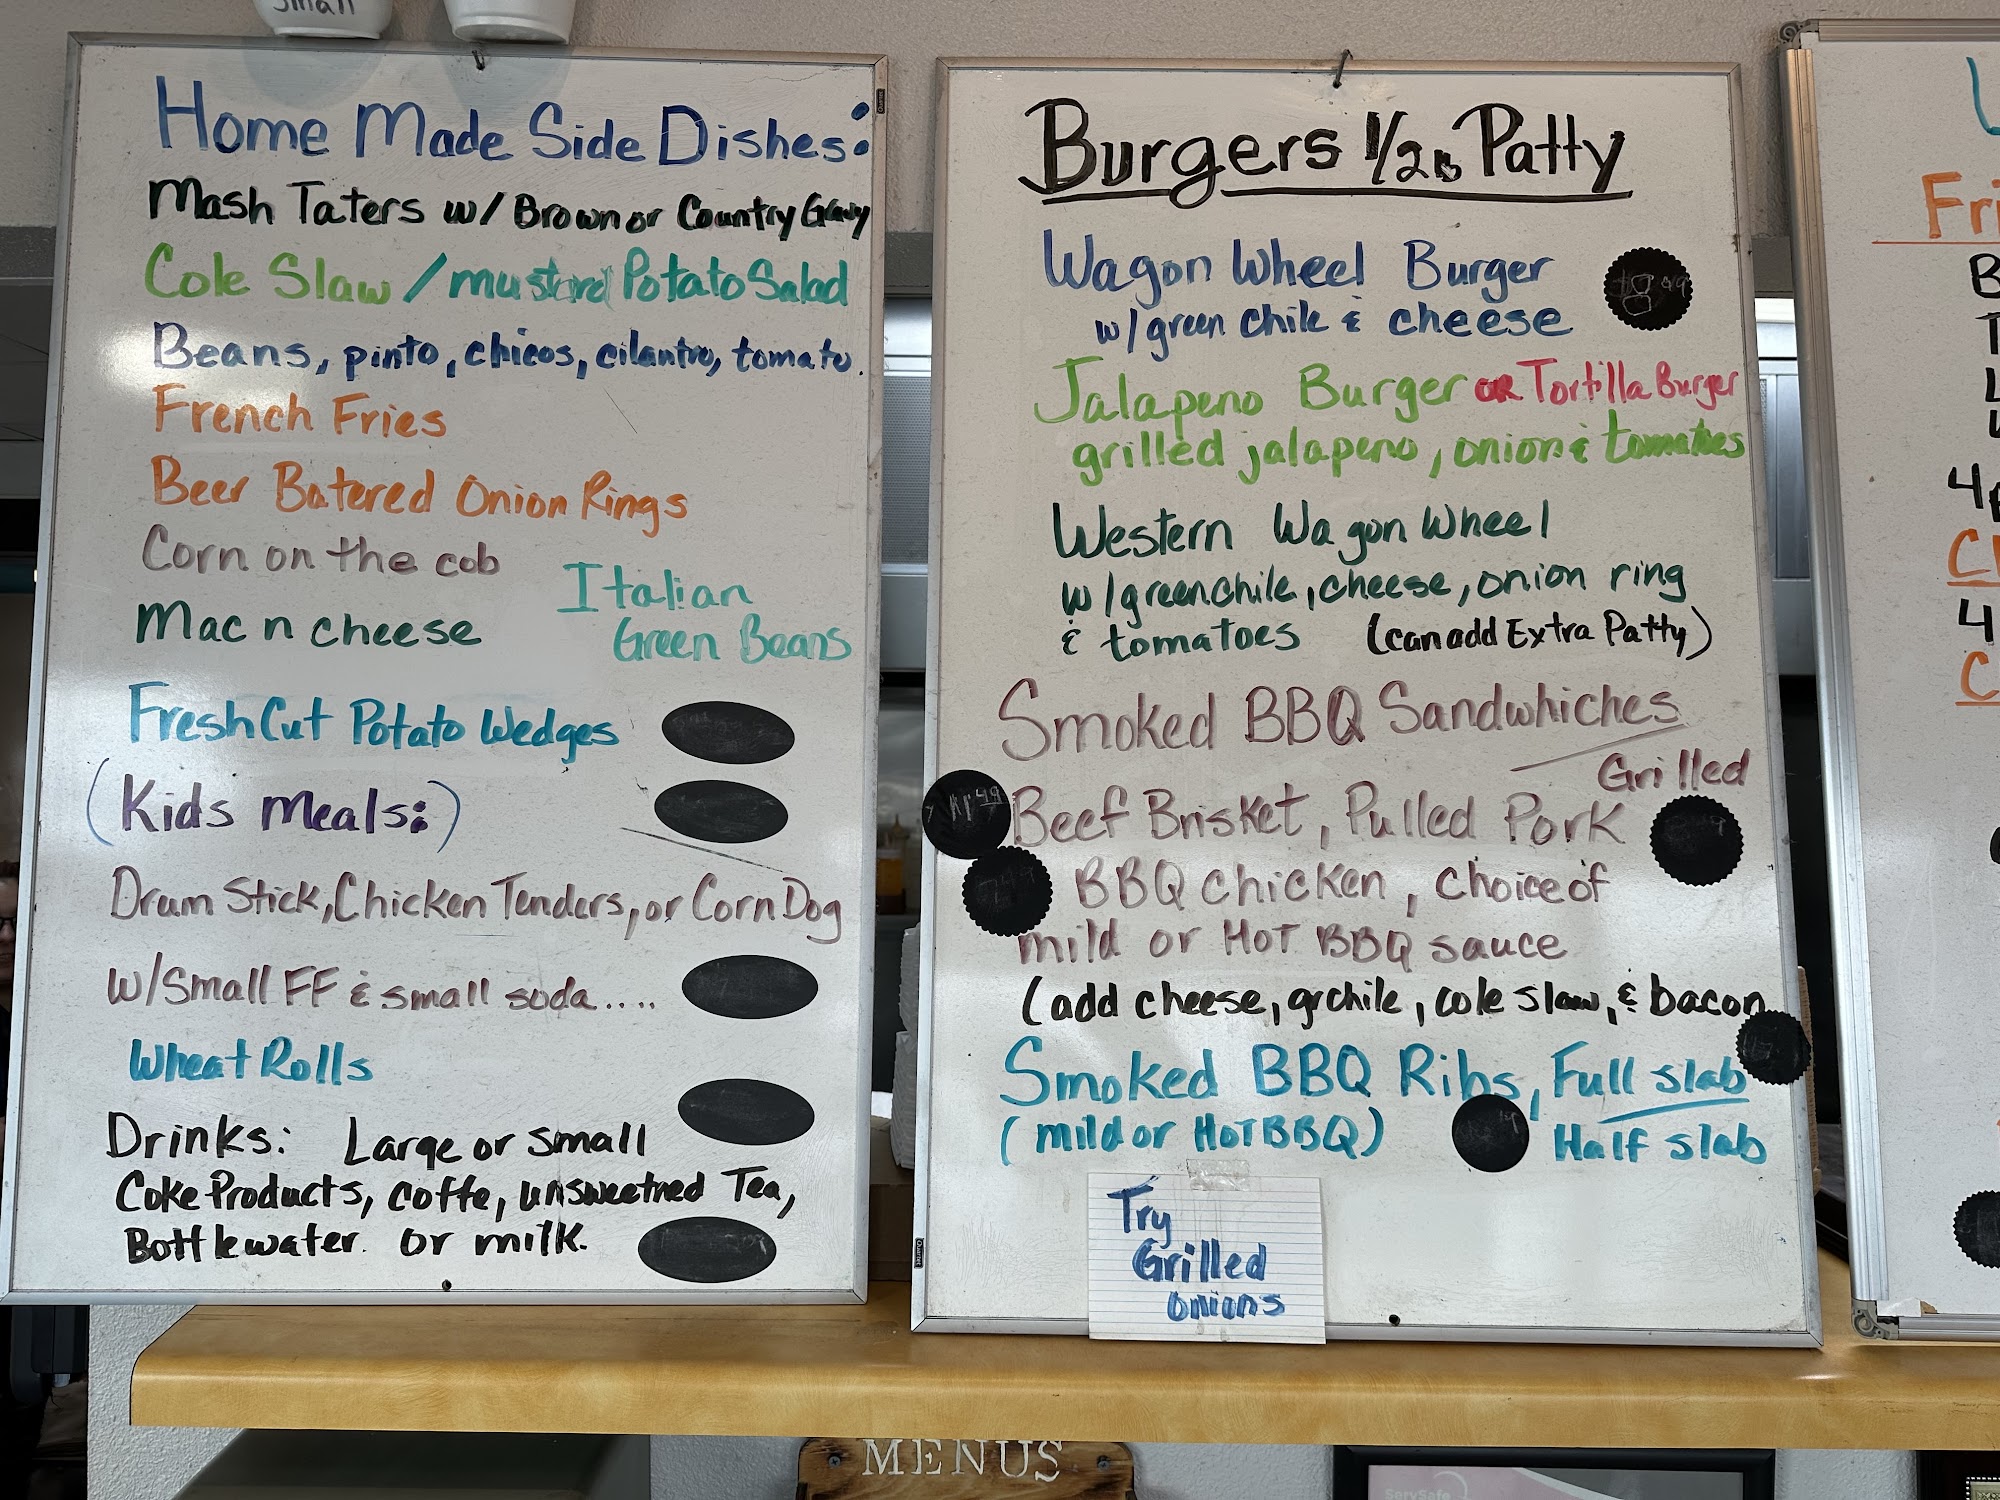 small
Home Made Side Dishes:
Mash Taters w/ Brown or Country Gravy
Cole Slaw / mustard Potato Salad
Beans, pinto, chicos, cilantro, tomato.
French Fries
Beer Batered Onion Rings
Corn on the cob
Mac n cheese
Italian
Green Beans
Fresh Cut Potato Wedges
(Kids Meals:)
Drum Stick, Chicken Tenders, or Corn Dog
w/Small FF & small soda....
Wheat Rolls
Drinks: Large or small
Coke Products, coffe, unsweetned Tea,
Bottle water. or milk.
Burgers 1/2 lb Patty
Wagon Wheel Burger
w/green chile & cheese
Jalapeno Burger OR Tortilla Burger
grilled jalapeno, onion & tomatoes
Western Wagon Wheel
w/greenchile, cheese, onion ring
& tomatoes (can add Extra Patty)
Smoked BBQ Sandwhiches
Grilled
Beef Brisket, Pulled Pork
BBQ chicken, choice of
mild or HOT BBQ sauce
(add cheese, gr chile, cole slaw, & bacon
Smoked BBQ Ribs, Full slab
(mild or HOT BBQ) Half slab
Try
Grilled
onions
MENUS
ServSafe
Fri
4
4